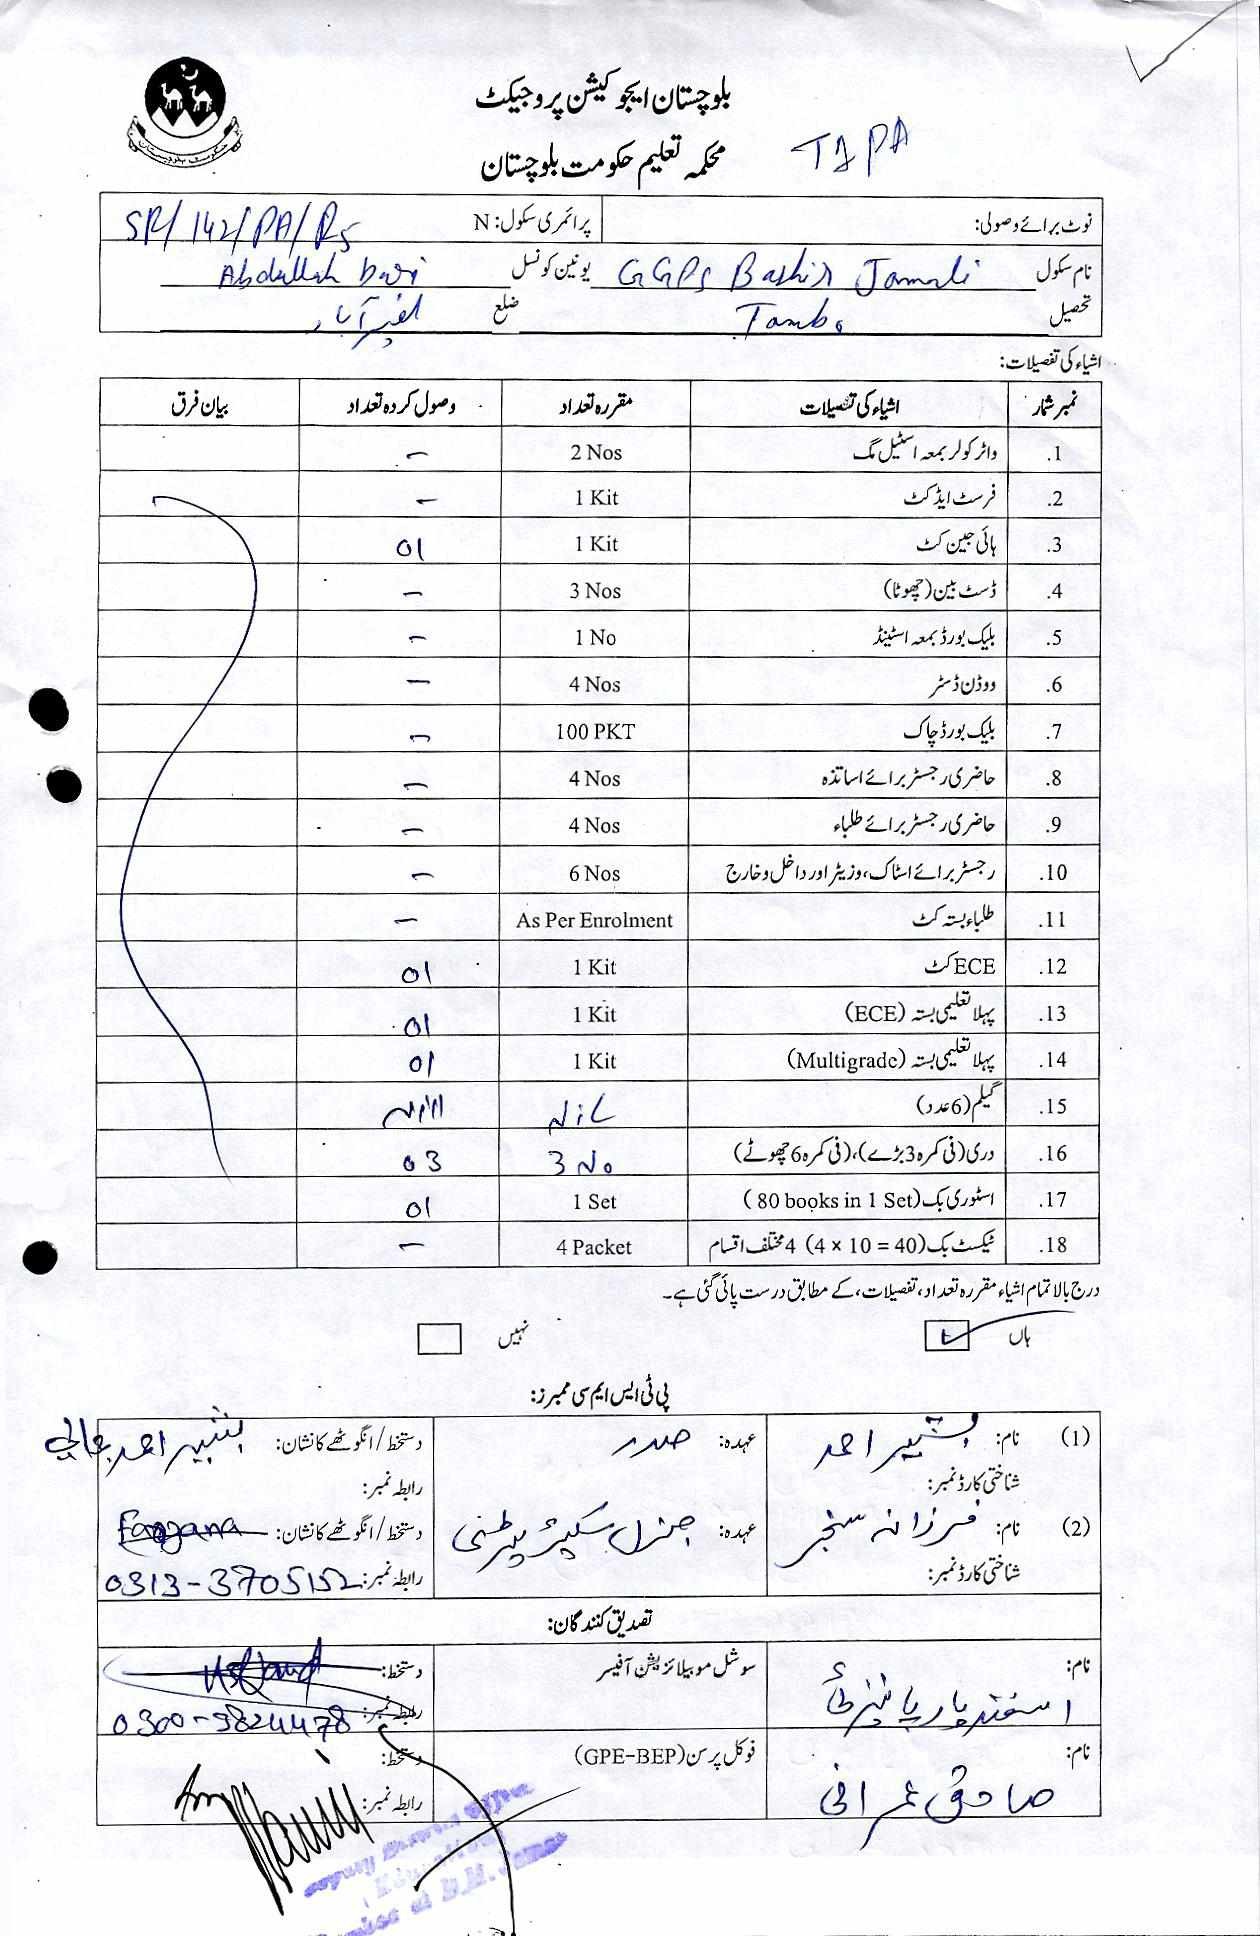 بلوچستان ایجوکیشن پروجیکٹ
محکمہ تعلیم حکومت بلوچستان
TAPA
نوٹ برائے وصولی: پرائمری سکول: N SR/142/PA/RS
نام سکول GGPS Bashir Jamali یونین کونسل Abdullah
تحصیل Tambo ضلع نصیر آباد
اشیاء کی تفصیلات:
نمبر شمار اشیاء کی تفصیلات مقررہ تعداد وصول کردہ تعداد بیان فرق
.1 واٹر کولر بمعہ اسٹیل مگ 2 Nos –
.2 فرسٹ ایڈ کٹ 1 Kit –
.3 ہائی جین کٹ 1 Kit 01
.4 ڈسٹ بین (چھوٹا) 3 Nos –
.5 بلیک بورڈ بمعہ اسٹینڈ 1 No –
.6 ووڈن ڈسٹر 4 Nos –
.7 بلیک بورڈ چاک 100 PKT –
.8 حاضری رجسٹر برائے اساتذہ 4 Nos –
.9 حاضری رجسٹر برائے طلباء 4 Nos –
.10 رجسٹر برائے اسٹاک، وزیٹر اور داخل و خارج 6 Nos –
.11 طلباء بستہ کٹ As Per Enrolment –
.12 ECE کٹ 1 Kit 01
.13 پہلا تعلیمی بستہ (ECE) 1 Kit 01
.14 پہلا تعلیمی بستہ (Multigrade) 1 Kit 01
.15 گیلم (6 عدد) Nil Nill
.16 دری (فی کمرہ 3 بڑے)، (فی کمرہ 6 چھوٹے) 3 No 03
.17 اسٹوری بک (80 books in 1 Set) 1 Set 01
.18 ٹیکسٹ بک (4 × 10 = 40) 4 مختلف اقسام 4 Packet –
درج بالا تمام اشیاء مقررہ تعداد، تفصیلات، کے مطابق درست پائی گئی ہے۔
ہاں نہیں
پی ٹی ایس ایم سی ممبرز:
(1) نام: بشیر احمد عہدہ: صدر دستخط/انگوٹھے کا نشان: بشیر احمد جمالی
شناختی کارڈ نمبر: رابطہ نمبر:
(2) نام: فرزانہ سنجر عہدہ: جنرل سیکریٹری دستخط/انگوٹھے کا نشان: Farzana
شناختی کارڈ نمبر: رابطہ نمبر: 0313-3705152
تصدیق کنندگان:
نام: اسفند یار سوشل موبیلائزیشن آفیسر دستخط:
رابطہ نمبر: 0300-3824478
نام: صادق عمرانی فوکل پرسن (GPE-BEP) دستخط:
رابطہ نمبر: